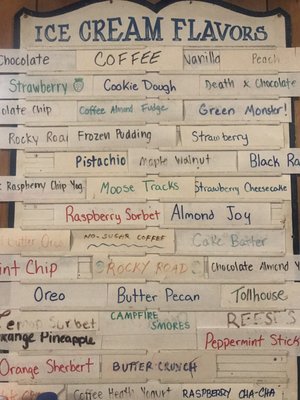 ICE CREAM FLAVORS
Chocolate COFFEE Vanilla Peach
Strawberry Cookie Dough Death x Chocolate
olate Chip Coffee Almond Fudge Green Monster!
Rocky Road Frozen Pudding Strawberry
Pistachio Maple Walnut Black Ra
k Raspberry Chip Yog Moose Tracks Strawberry Cheesecake
Raspberry Sorbet Almond Joy
NO-SUGAR COFFEE Cake Batter
int Chip ROCKY ROAD Chocolate Almond
Oreo Butter Pecan Tollhouse
Lemon Sorbet CAMPFIRE SMORES REESE'S
range Pineapple Peppermint Stick
Orange Sherbert BUTTER-CRUNCH
Coffee Heath Yogurt RASPBERRY CHA-CHA